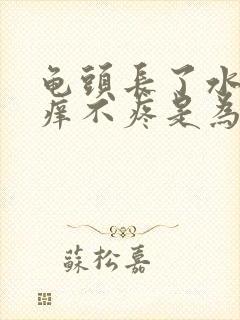 龟頭長了水
痒不疼是為
蘇松嘉